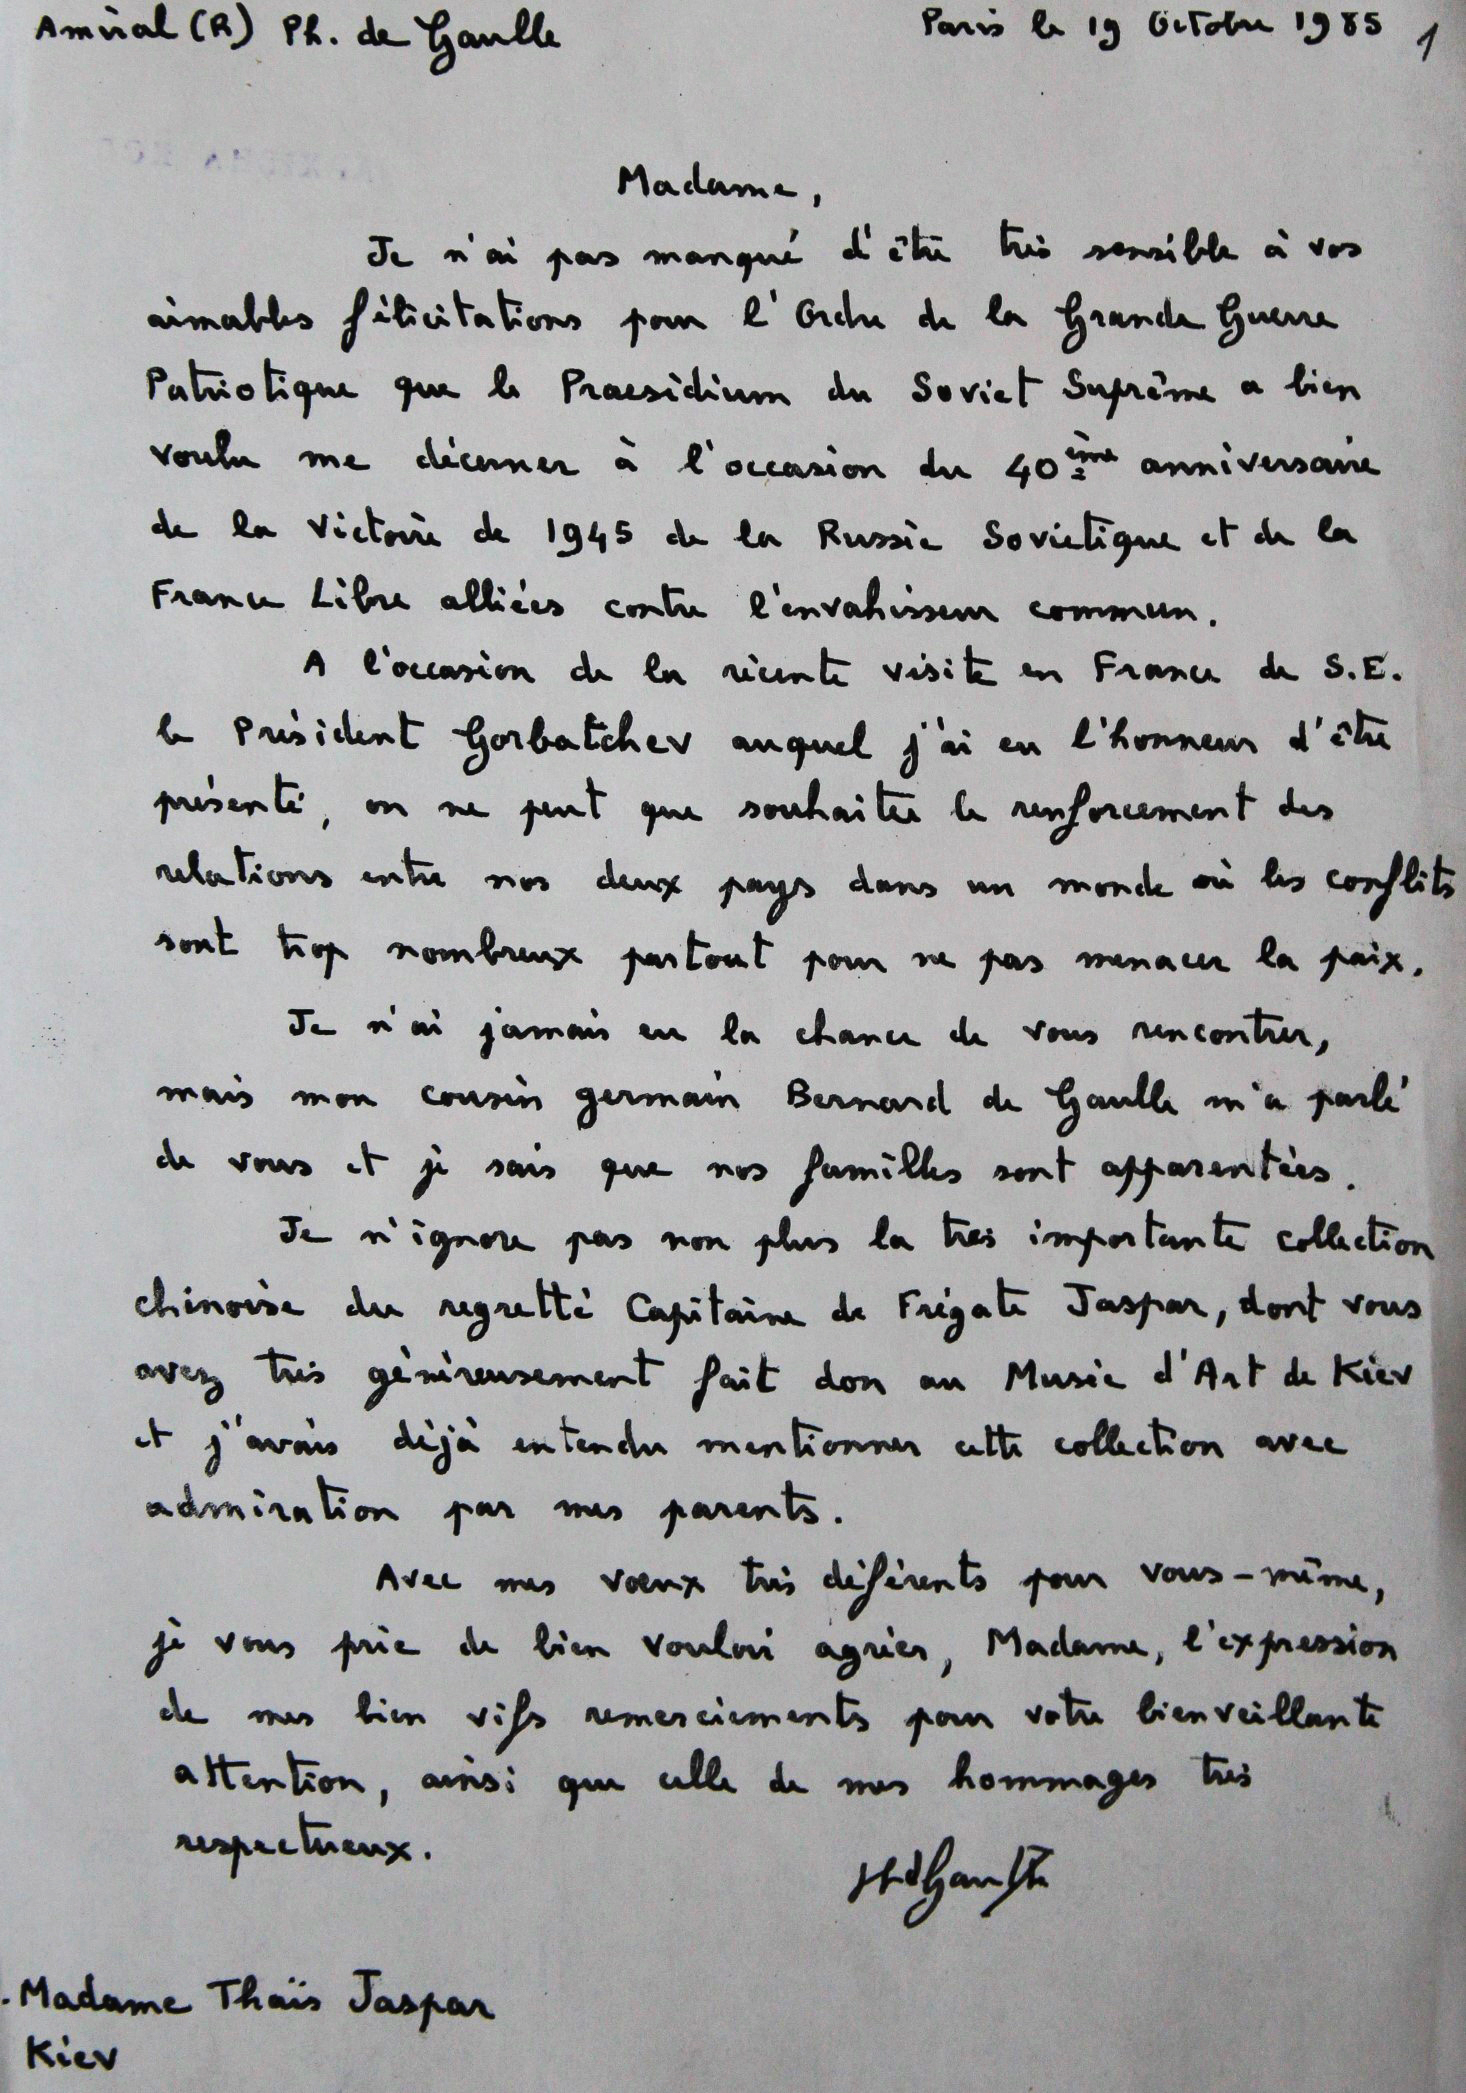 Amiral (R) Ph. de Gaulle
Paris le 19 Octobre 1985 1
Madame,
Je n'ai pas manqué d'être très sensible à vos
aimables félicitations pour l'Ordre de la Grande Guerre
Patriotique que le Praesidium du Soviet Suprême a bien
voulu me décerner à l'occasion du 40ème anniversaire
de la Victoire de 1945 de la Russie Soviétique et de la
France Libre alliées contre l'envahisseur commun.
A l'occasion de la récente visite en France de S.E.
le Président Gorbatchev auquel j'ai eu l'honneur d'être
présenté, on ne peut que souhaiter le renforcement des
relations entre nos deux pays dans un monde où les conflits
sont trop nombreux partout pour ne pas menacer la paix.
Je n'ai jamais eu la chance de vous rencontrer,
mais mon cousin germain Bernard de Gaulle m'a parlé
de vous et je sais que nos familles sont apparentées.
Je n'ignore pas non plus la très importante collection
chinoise du regretté Capitaine de Frégate Jaspar, dont vous
avez très généreusement fait don au Musée d'Art de Kiev
et j'avais déjà entendu mentionner cette collection avec
admiration par mes parents.
Avec mes vœux très déférents pour vous-même,
je vous prie de bien vouloir agréer, Madame, l'expression
de mes bien vifs remerciements pour votre bienveillante
attention, ainsi que celle de mes hommages très
respectueux.
Ph de Gaulle
Madame Thaïs Jaspar
Kiev